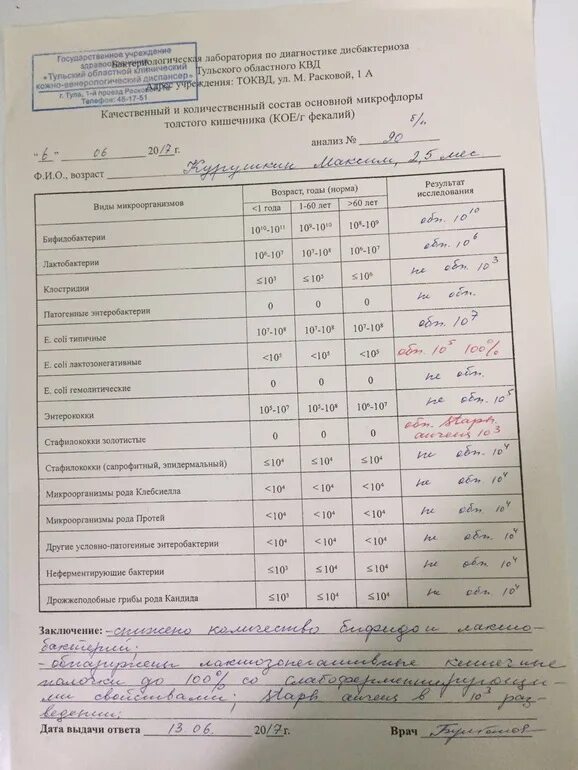 Государственное учреждение
здравоохранения
«Тульский областной клинический
кожно-венерологический диспансер»
г. Тула, 1-й проезд Расковой
Телефон: 45-17-51
Бактериологическая лаборатория по диагностике дисбактериоза
Тульского областного КВД
Адрес учреждения: ТОКВД, ул. М. Расковой, 1 А
Качественный и количественный состав основной микрофлоры
толстого кишечника (КОЕ/г фекалий)
"6" 06 2017 г. анализ № 90 б/н
Ф.И.О., возраст Курушкин Максим, 2,5 мес
Виды микроорганизмов Возраст, годы (норма) Результат исследования
<1 года 1-60 лет >60 лет
Бифидобактерии 10¹⁰-10¹¹ 10⁹-10¹⁰ 10⁸-10⁹ обн. 10¹⁰
Лактобактерии 10⁶-10⁷ 10⁷-10⁸ 10⁶-10⁷ обн. 10⁶
Клостридии ≤10³ ≤10⁵ ≤10⁶ не обн. 10³
Патогенные энтеробактерии 0 0 0 не обн.
E. coli типичные 10⁷-10⁸ 10⁷-10⁸ 10⁷-10⁸ обн. 10⁷
E. coli лактозонегативные <10⁵ <10⁵ <10⁵ обн. 10⁵ 100%
E. coli гемолитические 0 0 0 не обн.
Энтерококки 10⁵-10⁷ 10⁵-10⁸ 10⁶-10⁷ не обн. 10⁵
Стафилококки золотистые 0 0 0 обн. Staph. ауреус 10³
Стафилококки (сапрофитный, эпидермальный) ≤10⁴ ≤10⁴ ≤10⁴ не обн. 10⁴
Микроорганизмы рода Клебсиелла <10⁴ <10⁴ <10⁴ не обн. 10⁴
Микроорганизмы рода Протей <10⁴ <10⁴ <10⁴ не обн. 10⁴
Другие условно-патогенные энтеробактерии <10⁴ <10⁴ <10⁴ не обн. 10⁴
Неферментирующие бактерии ≤10³ ≤10⁴ ≤10⁴ не обн. 10⁴
Дрожжеподобные грибы рода Кандида ≤10³ ≤10⁴ ≤10⁴ не обн. 10⁴
Заключение: -снижено количество бифидо и лакто-
бактерий;
-обнаружены лактозонегативные кишечные
палочки до 100% со слабоферментирующи-
ми свойствами; Staph ауреус в 10³ раз-
ведении;
Дата выдачи ответа 13.06. 2017 г. Врач